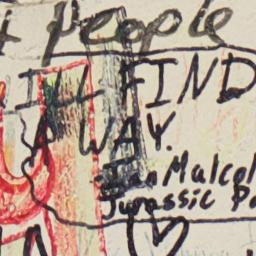 People
ILL FIND
A WAY.
Ian Malcol
Jurassic Pa